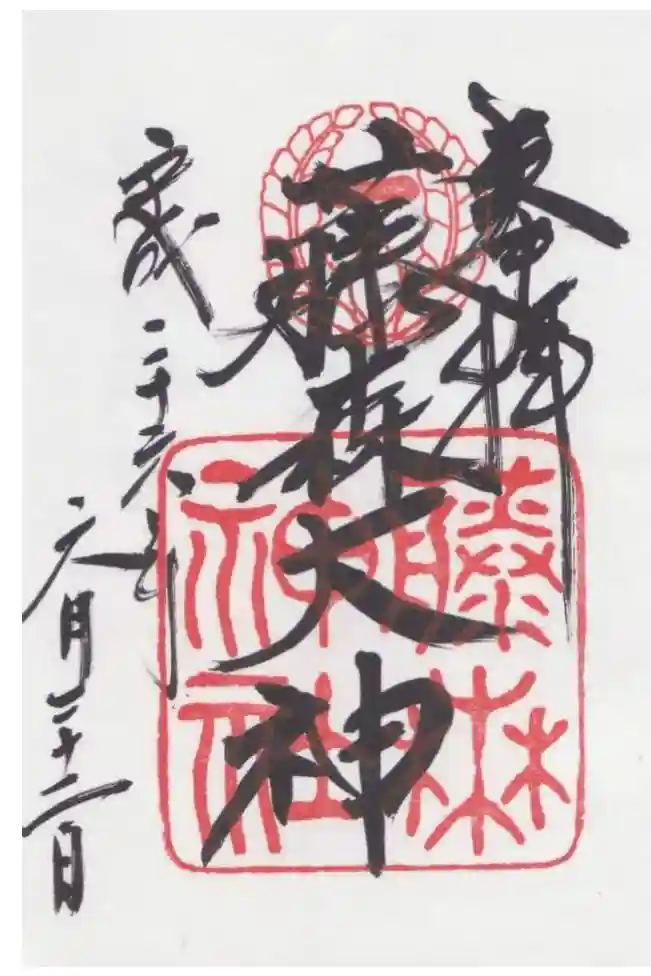 奉拝
藤森大神
平成二十六年
六月二十二日
藤森
神社